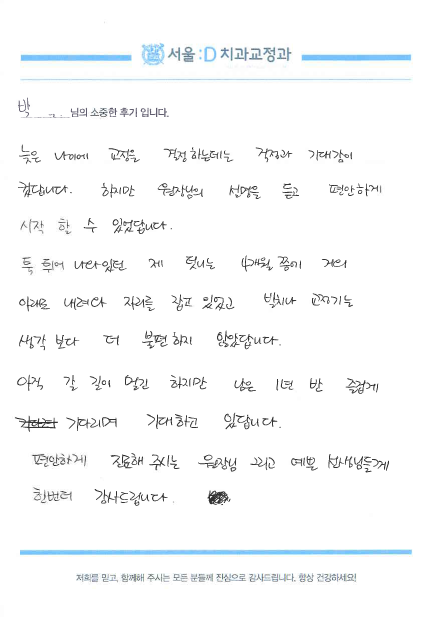 서울:D 치과교정과
박 님의 소중한 후기 입니다.
늦은 나이에 교정을 결정하는데는 걱정과 기대감이
컸답니다. 하지만 원장님의 설명을 듣고 편안하게
시작 할 수 있었답니다.
툭 튀어 나와있던 제 덧니는 4개월 쯤에 거의
아래로 내려와 자리를 잡고 있었고 발치나 교정기는
생각 보다 더 불편하지 않았답니다.
아직 갈 길이 멀긴 하지만 남은 1년 반 즐겁게
기다리며 기대하고 있답니다.
편안하게 진료해 주시는 원장님 그리고 예쁜 선생님들께
한번더 감사드립니다.
저희를 믿고, 함께해 주시는 모든 분들께 진심으로 감사드립니다. 항상 건강하세요!